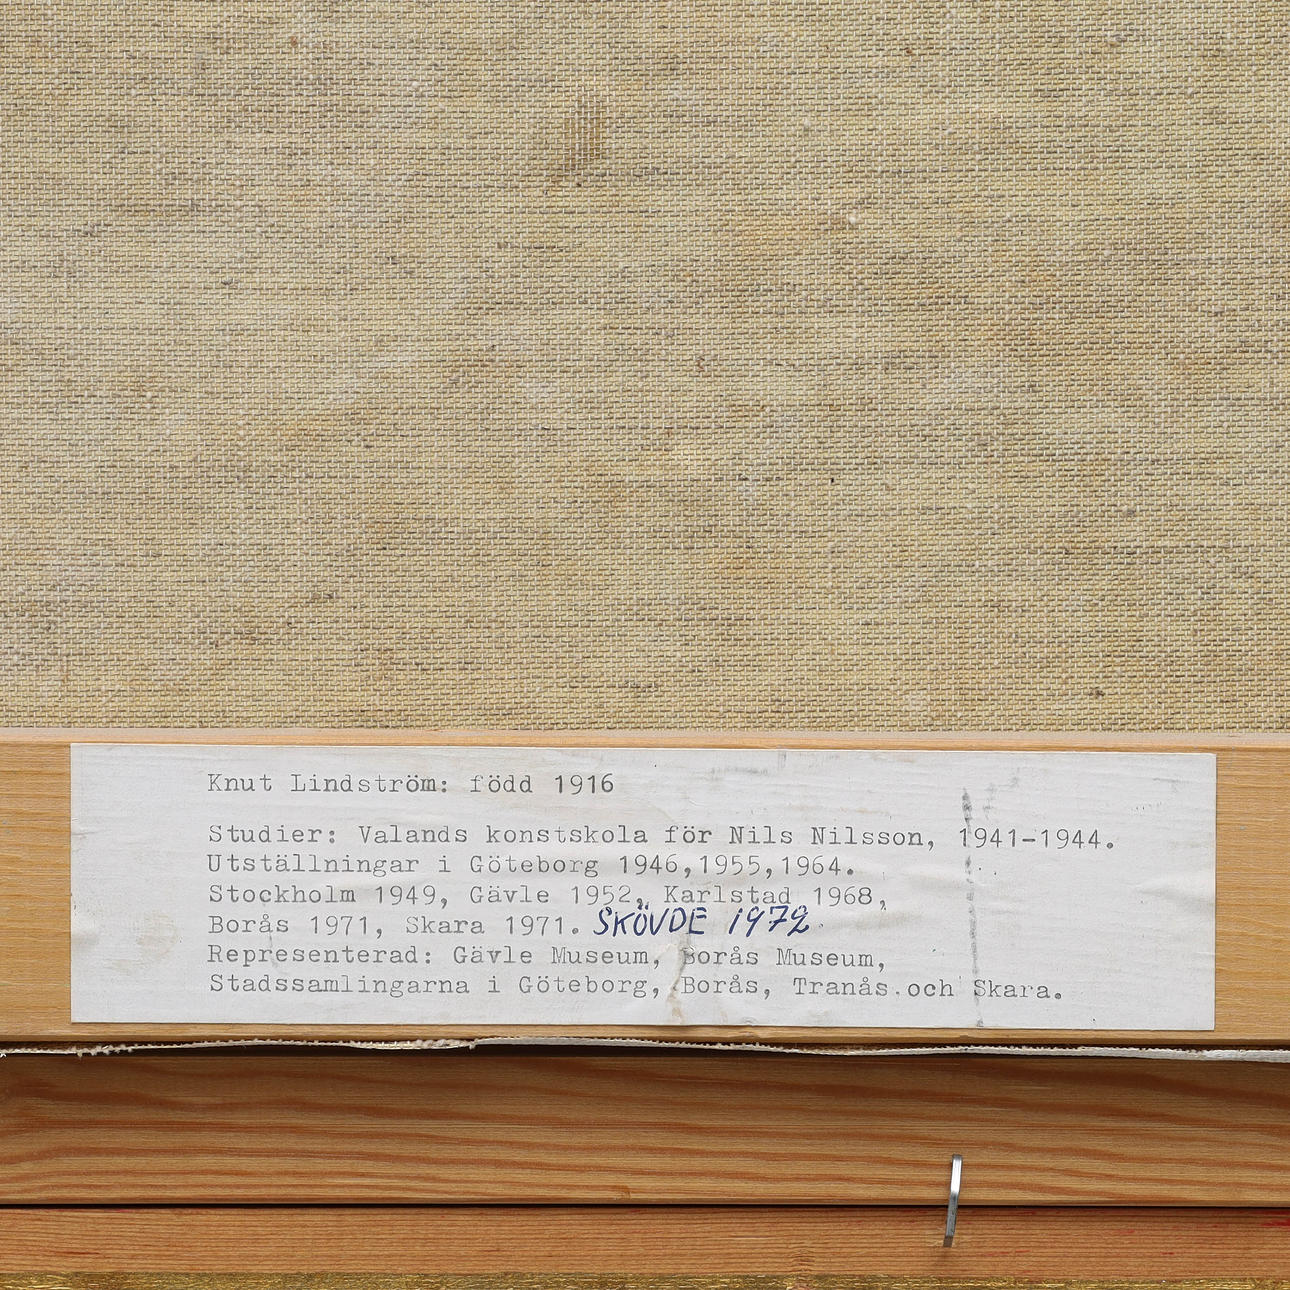 Knut Lindström: född 1916
Studier: Valands konstskola för Nils Nilsson, 1941-1944.
Utställningar i Göteborg 1946,1955,1964.
Stockholm 1949, Gävle 1952, Karlstad 1968,
Borås 1971, Skara 1971. SKÖVDE 1972
Representerad: Gävle Museum, Borås Museum,
Stadssamlingarna i Göteborg, Borås, Tranås och Skara.